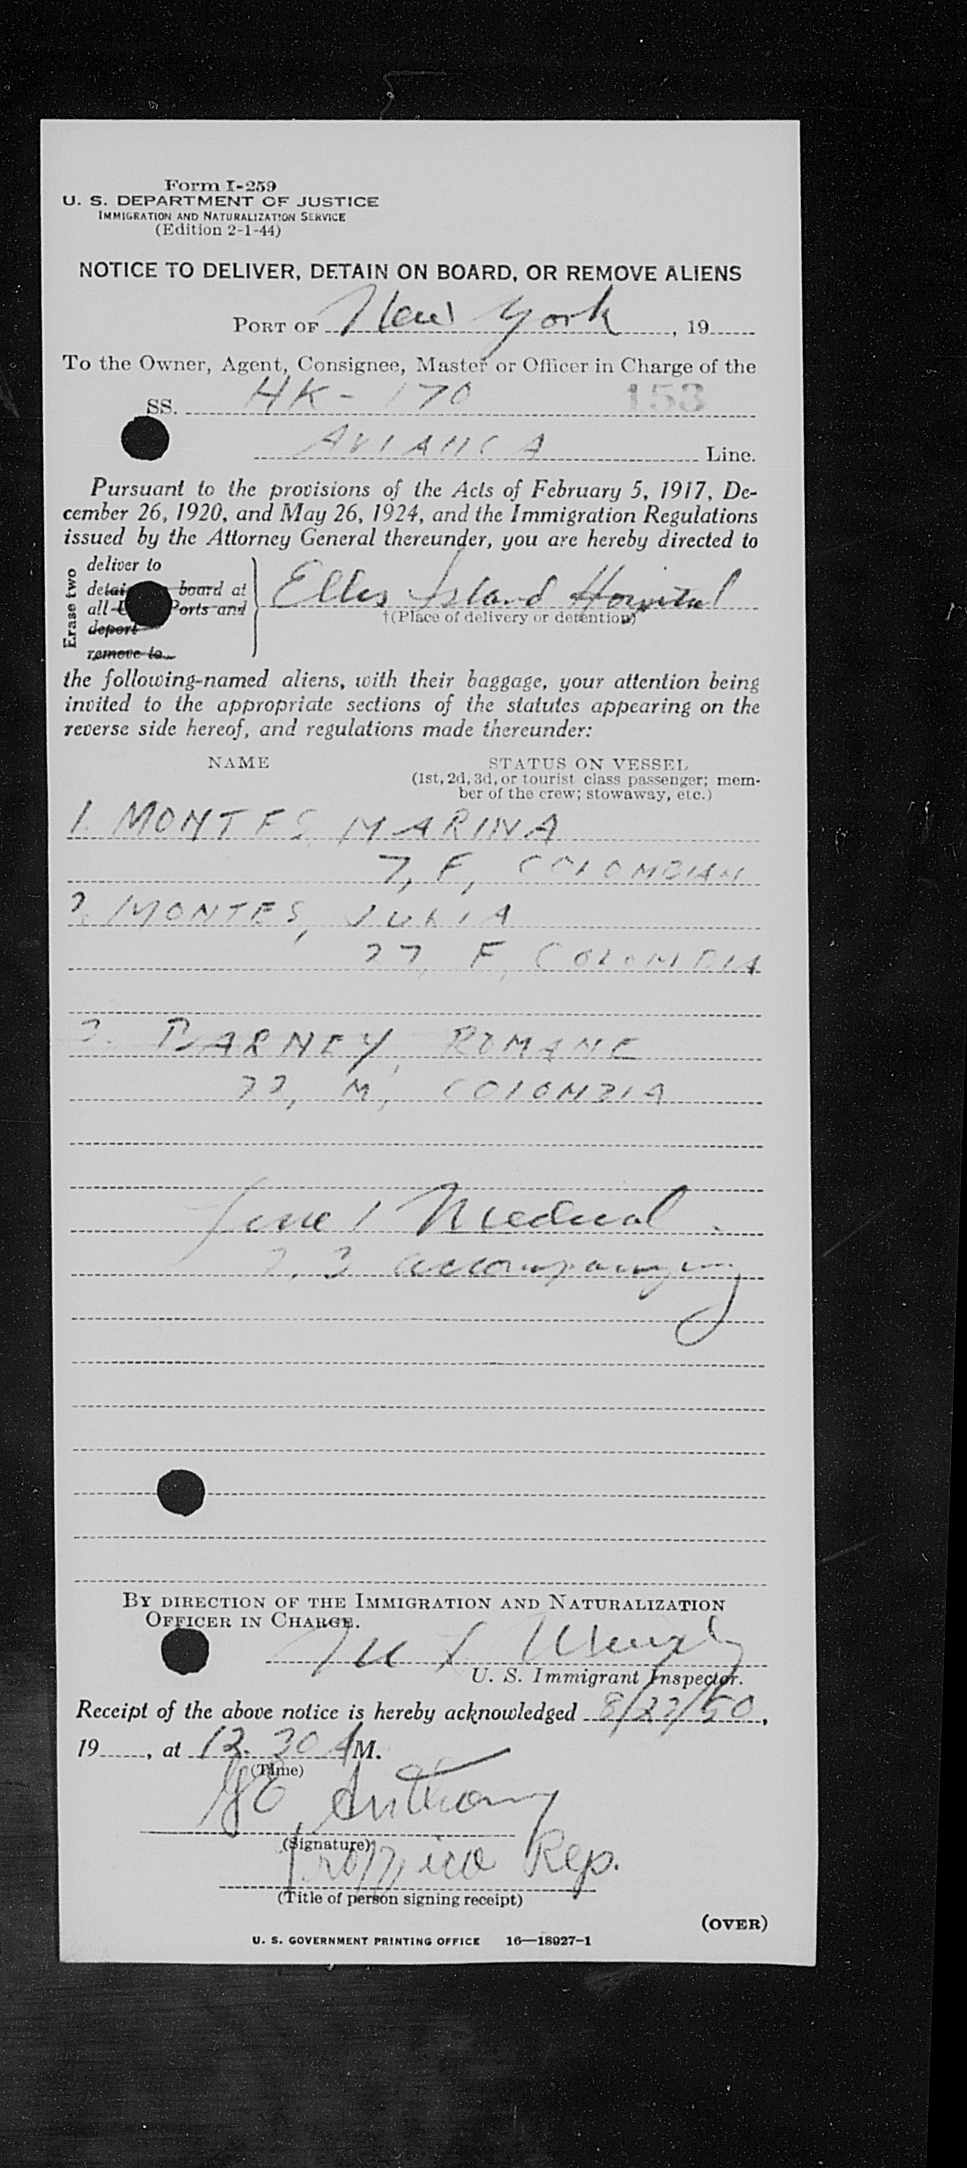 Form I-259
U. S. DEPARTMENT OF JUSTICE
IMMIGRATION AND NATURALIZATION SERVICE
(Edition 2-1-44)
NOTICE TO DELIVER, DETAIN ON BOARD, OR REMOVE ALIENS
PORT OF New York, 19
To the Owner, Agent, Consignee, Master or Officer in Charge of the
SS. HK-170 153
AVIANCA Line.
Pursuant to the provisions of the Acts of February 5, 1917, De-
cember 26, 1920, and May 26, 1924, and the Immigration Regulations
issued by the Attorney General thereunder, you are hereby directed to
Erase two
deliver to
detain board at
all Ports and
deport
remove to
Ellis Island Hospital
†(Place of delivery or detention)
the following-named aliens, with their baggage, your attention being
invited to the appropriate sections of the statutes appearing on the
reverse side hereof, and regulations made thereunder:
NAME STATUS ON VESSEL
(1st, 2d, 3d, or tourist class passenger; mem-
ber of the crew; stowaway, etc.)
1. MONTES MARINA
7, F, COLOMBIAN
2. MONTES, JULIA
27, F, COLOMBIA
3. BARNEY, ROMANE
22, M, COLOMBIA
Line 1 Medical.
2. 3 accompanying
BY DIRECTION OF THE IMMIGRATION AND NATURALIZATION
OFFICER IN CHARGE.
U. S. Immigrant Inspector.
Receipt of the above notice is hereby acknowledged 8/27/50,
19, at 12.30 AM.
(Time)
Anthony
(Signature)
Rep.
(Title of person signing receipt)
(OVER)
U. S. GOVERNMENT PRINTING OFFICE 16—18927-1